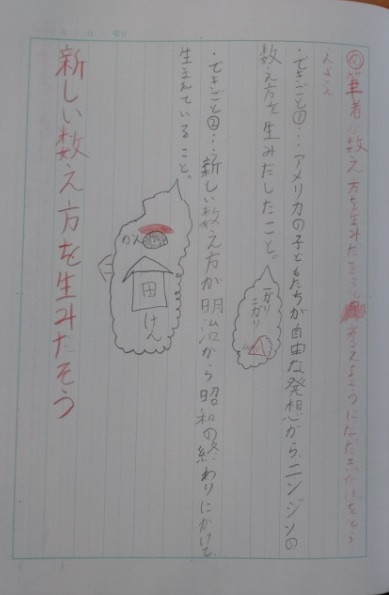 筆者が数え方を生みだそうと考えるようになったきっかけをとら
えよう
・できごと①…アメリカの子どもたちが自由な発想から、ニンジンの
数え方を生みだしたこと。
ガリ
ガリ
・できごと②…新しい数え方が明治から昭和の終わりにかけて
生まれていること。
かん
けん
新しい数え方を生みだそう